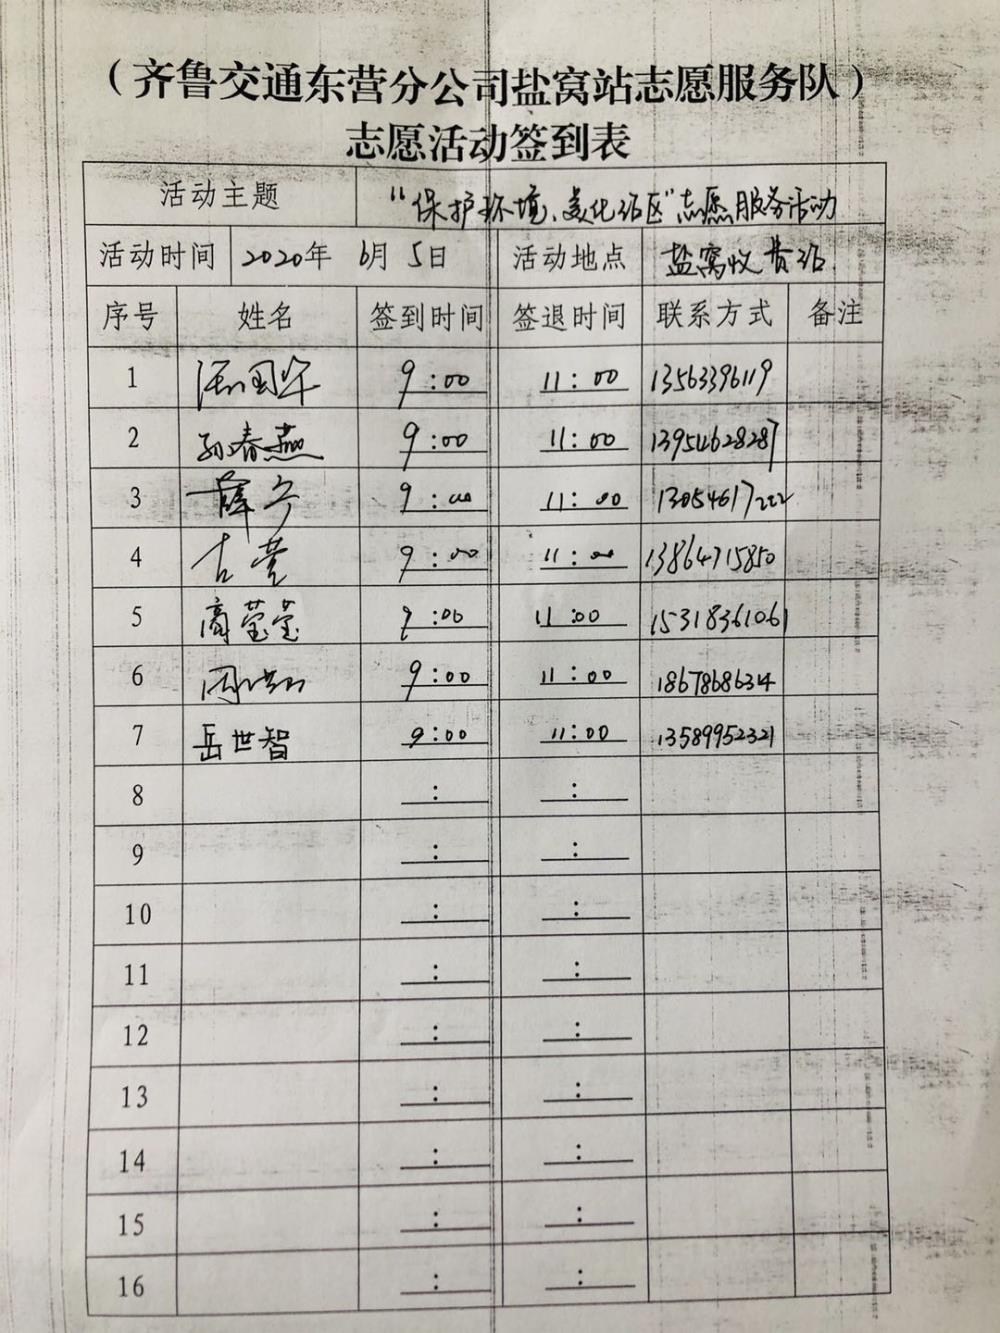 （齐鲁交通东营分公司盐窝站志愿服务队）
志愿活动签到表
活动主题 "保护环境、美化站区"志愿服务活动
活动时间 2020年 6月 5日 活动地点 盐窝收费站
序号 姓名 签到时间 签退时间 联系方式 备注
1 国华 9:00 11:00 13563396119
2 孙春燕 9:00 11:00 13954628287
3 薛 9:00 11:00 13054617222
4 古莹 9:00 11:00 13864715850
5 商莹莹 9:00 11:00 15318361061
6 周 9:00 11:00 18678686314
7 岳世智 9:00 11:00 13589952321
8 : :
9 : :
10 : :
11 : :
12 : :
13 : :
14 : :
15 : :
16 : :